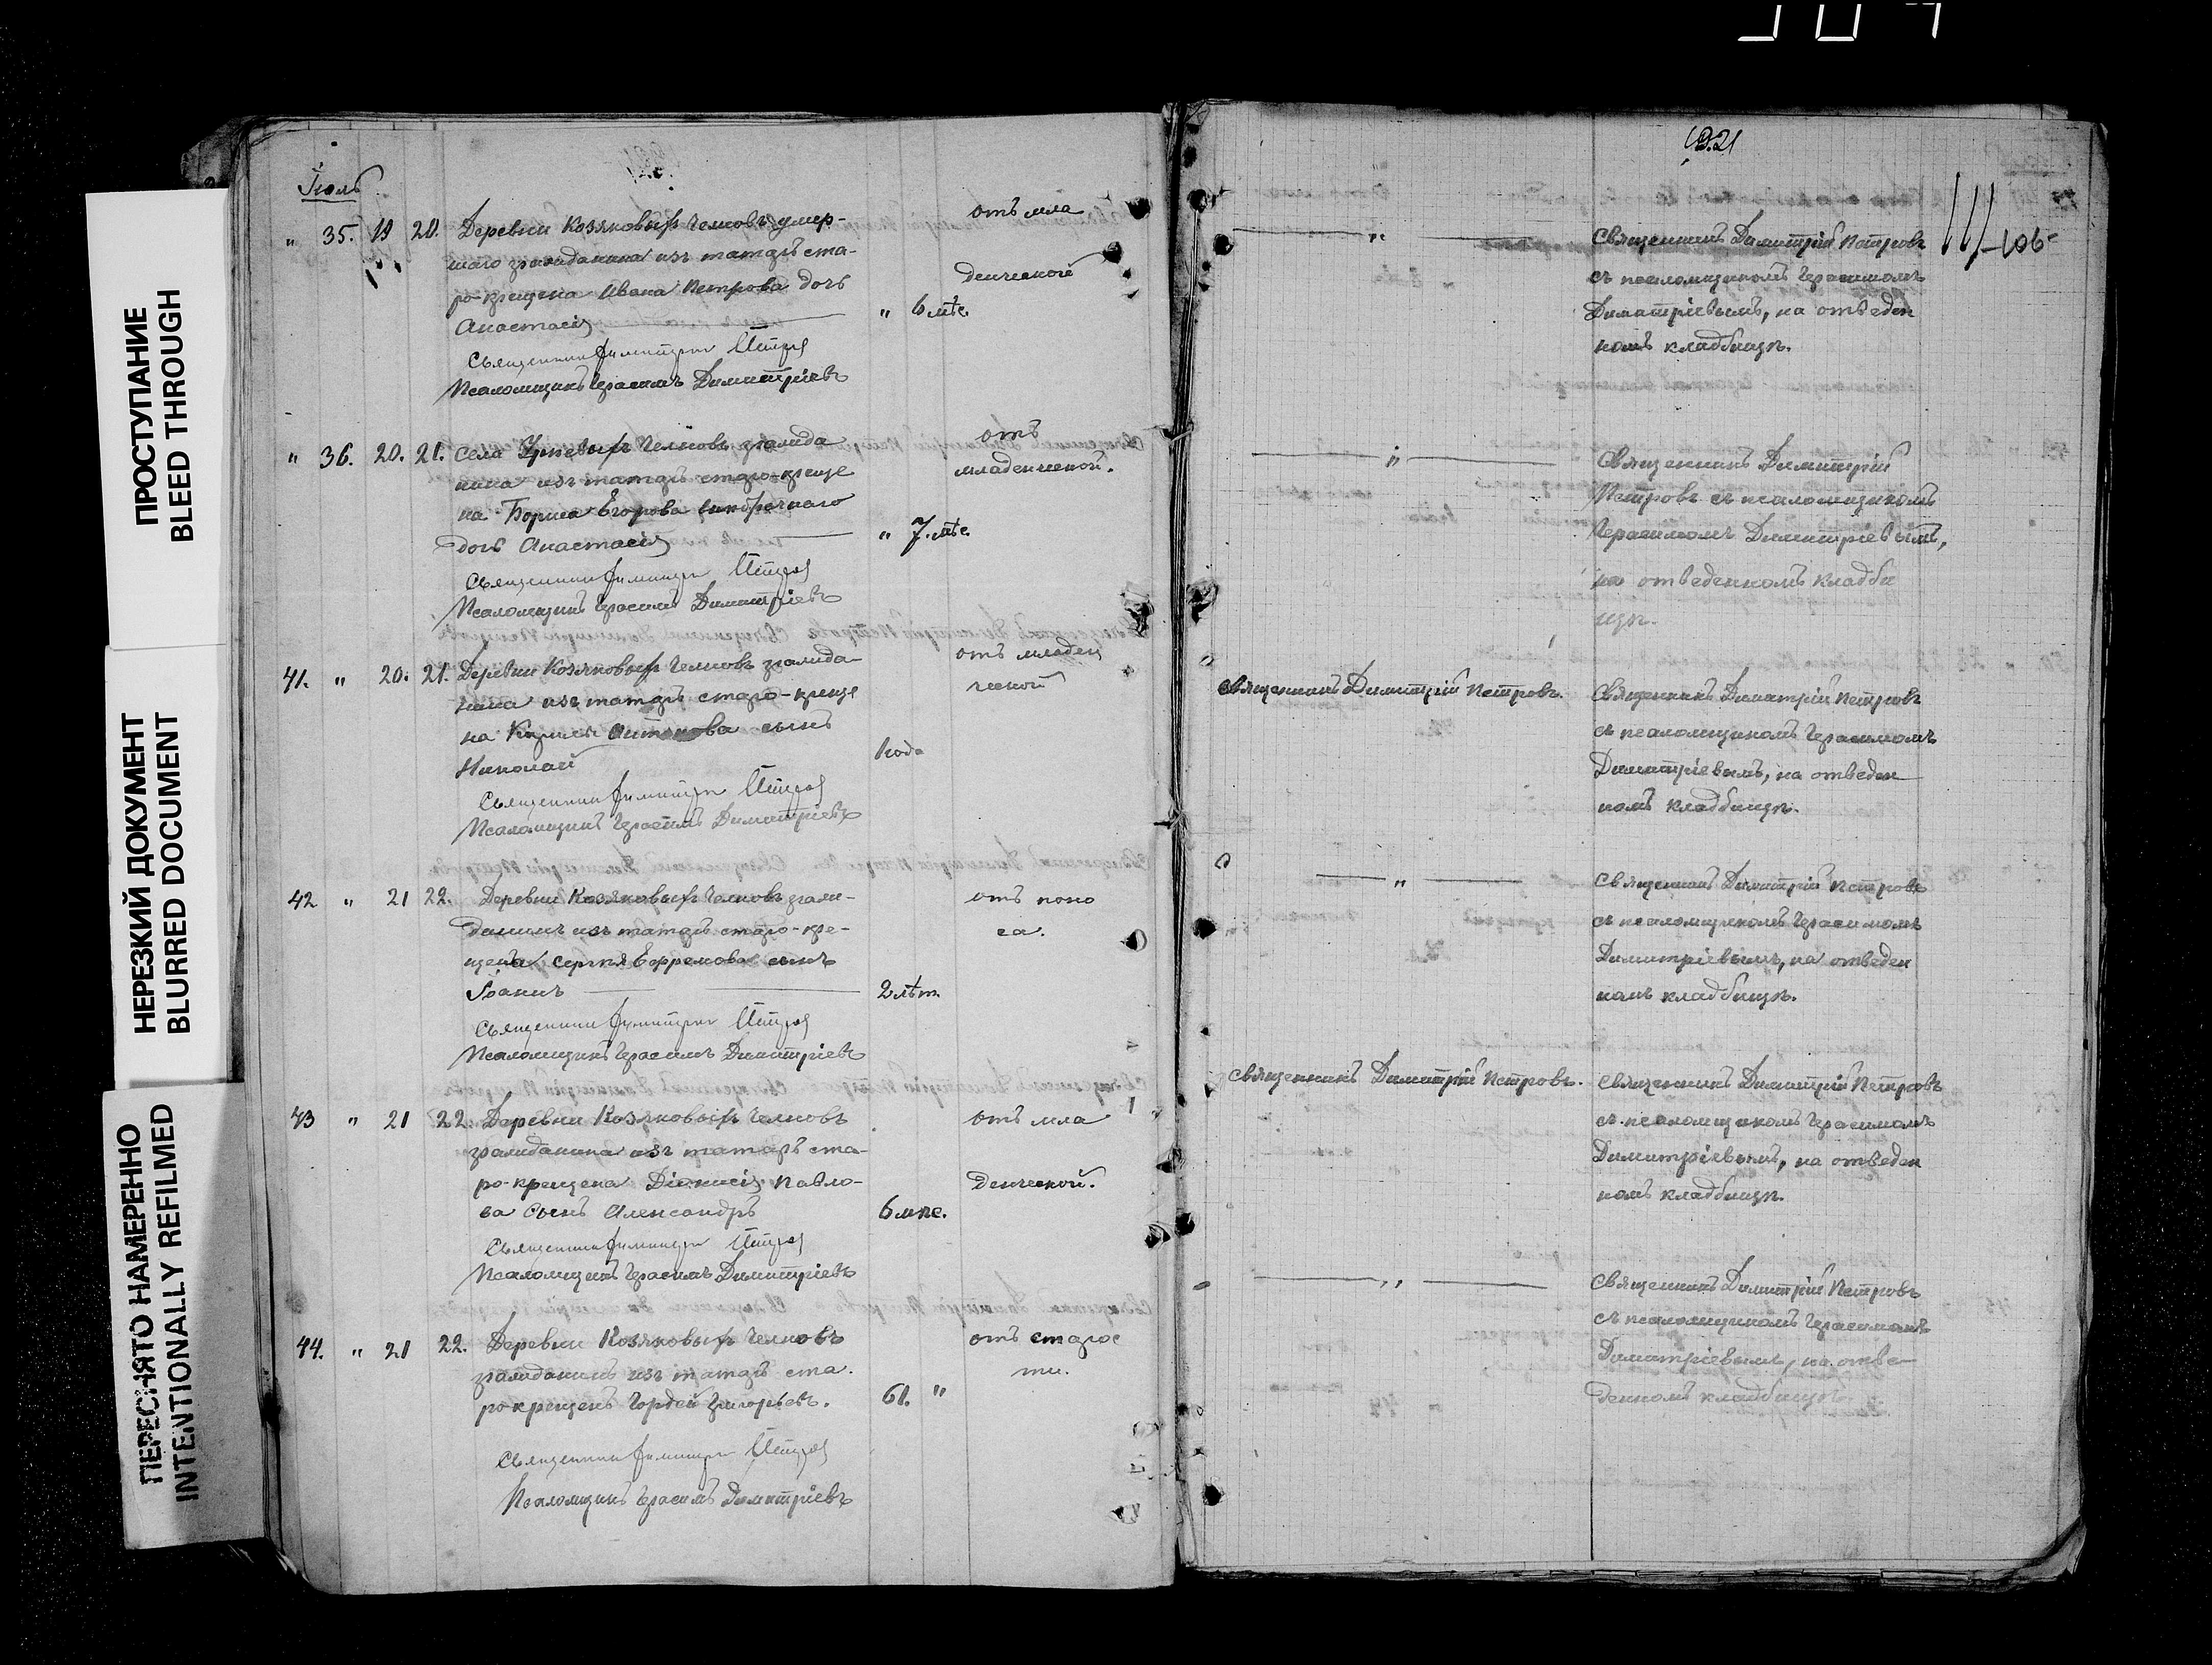 ПРОСТУПАНИЕ
BLEED THROUGH
НЕРЕЗКИЙ ДОКУМЕНТ
BLURRED DOCUMENT
ПЕРЕСНЯТО НАМЕРЕННО
INTENTIONALLY REFILMED
Іюль
" 35. 19 20. Деревни Козяковыхъ Челновъ умер-
шаго гражданина изъ татаръ ста-
ро-крещена Ивана Петрова дочь
Анастасія " 6 мѣс.
отъ мла
денческой
Священникъ Димитрій Петровъ
Псаломщикъ Герасимъ Димитріевъ
" 36. 20. 21. Села Челновъ гражда
нина изъ татаръ старо-креще
на Бориса Егорова внѣбрачнаго
дочь Анастасія " 7. мѣс.
отъ
младенческой.
Священникъ Димитрій Петровъ
Псаломщикъ Герасимъ Димитріевъ
41. " 20. 21. Деревни Козяковыхъ Челновъ гражда-
нина изъ татаръ старо-креще
на Антонова сынъ
Николай 1 года
отъ младен
ческой
Священникъ Димитрій Петровъ
Псаломщикъ Герасимъ Димитріевъ
42 " 21 22. Деревни Козяковыхъ Челновъ граж-
данинъ изъ татаръ старо-кре-
щена Сергѣя Ефремова сынъ
Іоаннъ 2 лѣт.
отъ поно
са.
Священникъ Димитрій Петровъ
Псаломщикъ Герасимъ Димитріевъ
43 " 21 22. Деревни Козяковыхъ Челновъ
гражданина изъ татаръ ста-
ро-крещена Діонисія Павло-
ва сынъ Александръ 6 мѣс.
отъ мла
денческой.
Священникъ Димитрій Петровъ
Псаломщикъ Герасимъ Димитріевъ
44. " 21 22. Деревни Козяковыхъ Челновъ
гражданинъ изъ татаръ ста-
ро-крещенъ Гордей Григорьевъ. 61. "
отъ старос
ти.
Священникъ Димитрій Петровъ
Псаломщикъ Герасимъ Димитріевъ
1921
106
" Священникъ Димитрій Петровъ
съ псаломщикомъ Герасимомъ
Димитріевымъ, на отведен
номъ кладбищѣ.
" Священникъ Димитрій
Петровъ съ псаломщикомъ
Герасимомъ Димитріевымъ,
на отведенномъ кладби
щѣ.
Священникъ Димитрій Петровъ. Священникъ Димитрій Петровъ
съ псаломщикомъ Герасимомъ
Димитріевымъ, на отведен
номъ кладбищѣ.
" Священникъ Димитрій Петровъ
съ псаломщикомъ Герасимомъ
Димитріевымъ, на отведен
номъ кладбищѣ.
Священникъ Димитрій Петровъ. Священникъ Димитрій Петровъ
съ псаломщикомъ Герасимомъ
Димитріевымъ, на отведен
номъ кладбищѣ.
" Священникъ Димитрій Петровъ
съ псаломщикомъ Герасимомъ
Димитріевымъ, на отве-
денномъ кладбищѣ.